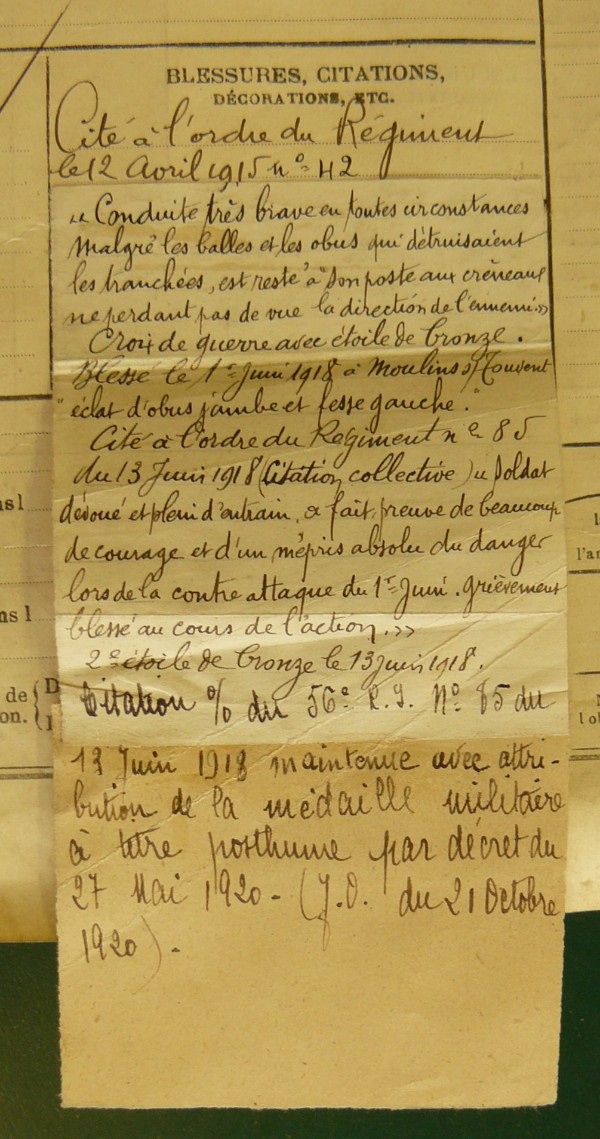 BLESSURES, CITATIONS,
DÉCORATIONS, ETC.
Cité à l'ordre du Régiment
le 12 Avril 1915 n° 42
« Conduite très brave en toutes circonstances
malgré les balles et les obus qui détruisaient
les tranchées, est resté à son poste aux créneaux
ne perdant pas de vue la direction de l'ennemi »
Croix de guerre avec étoile de bronze.
Blessé le 1er Juin 1918 à Moulins s/Touvent
"éclat d'obus jambe et fesse gauche."
Cité à l'ordre du Régiment n° 85
du 13 Juin 1918 (Citation collective) « Soldat
dévoué et plein d'entrain, a fait preuve de beaucoup
de courage et d'un mépris absolu du danger
lors de la contre attaque du 1er Juin. Grièvement
blessé au cours de l'action. »
2e étoile de bronze le 13 juin 1918.
Citation % du 56e R.I. N° 85 du
13 Juin 1918 maintenue avec attri-
bution de la médaille militaire
à titre posthume par décret du
27 Mai 1920 - (J.O. du 21 Octobre
1920). -
ns 1
de { D
on.
l'a
N
l ob